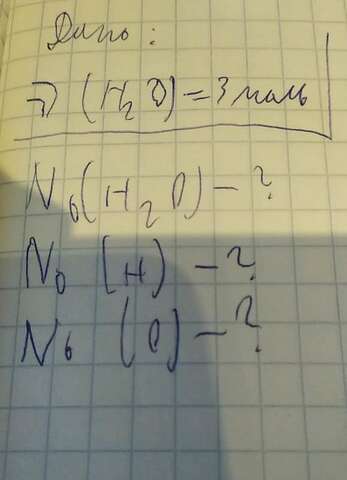 Дано:
ν(H₂O) = 3 моль
N₀(H₂O) – ?
N₀ (H) – ?
N₀ (O) – ?